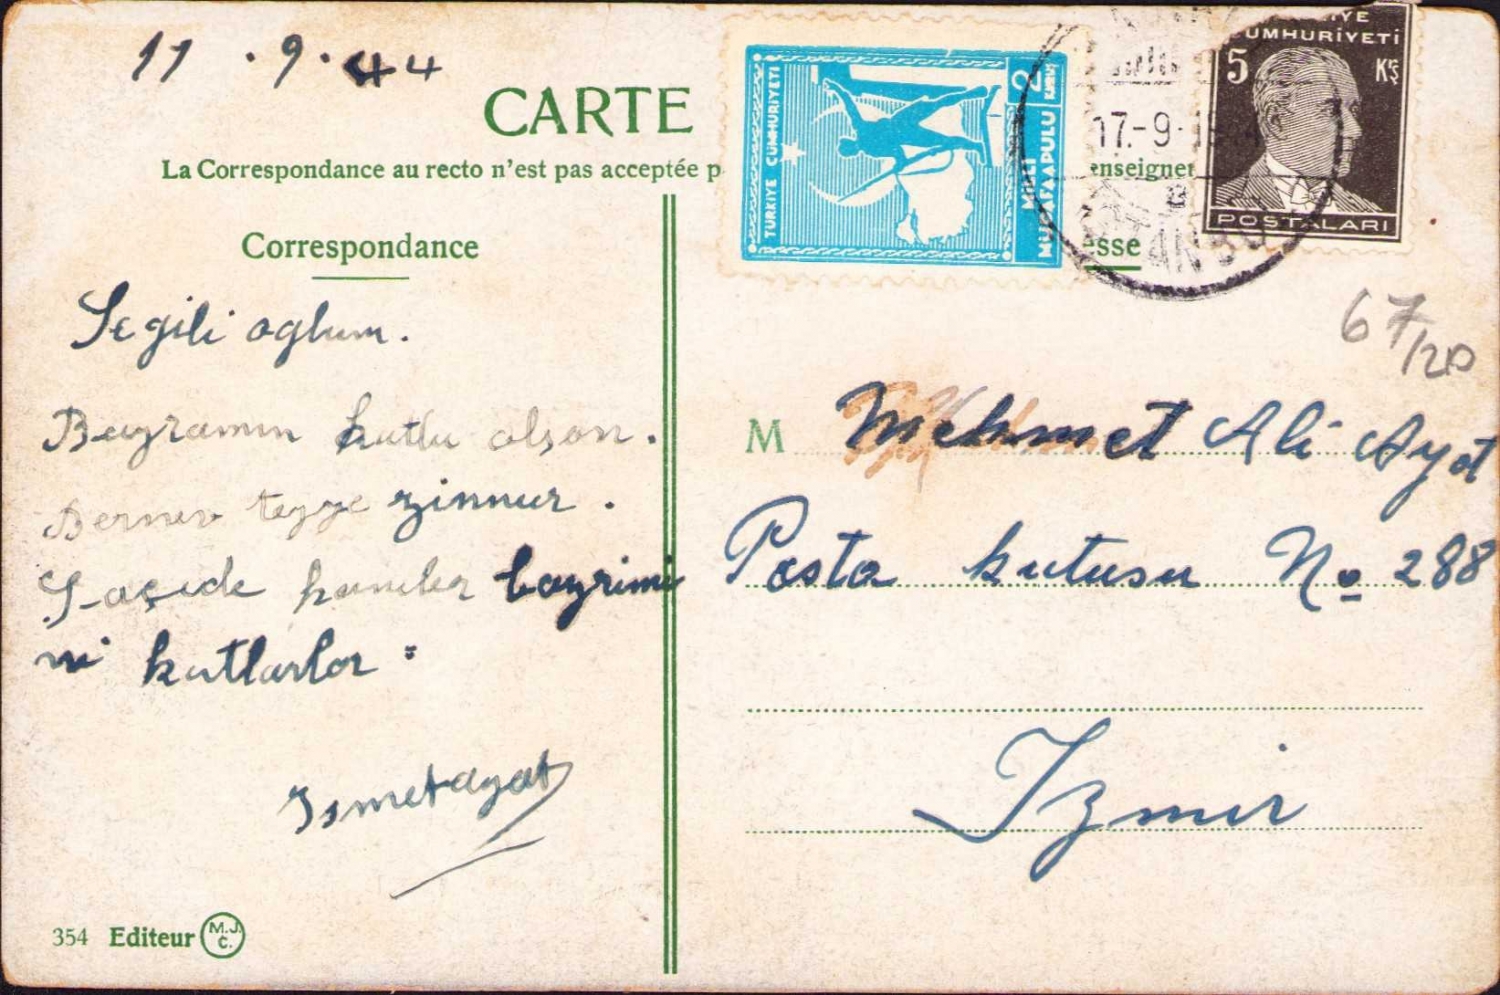 11 . 9 . 44
CARTE
La Correspondance au recto n'est pas acceptée p
enseigner
Correspondance
esse
TÜRKİYE CUMHURİYETİ
2
KURUŞ
MİLLİ
MÜDAFAA PULU
CUMHURİYETİ
5 Krş
POSTALARI
17-9-
67/20
Segili oglum.
Bayramın kutlu olson.
teyze zinnur.
bayrimi
ni kutlarlar
Ismetayat
M Mehmet Ali Ayat
Posta kutusu No 288
Izmir
354 Editeur M.J.C.